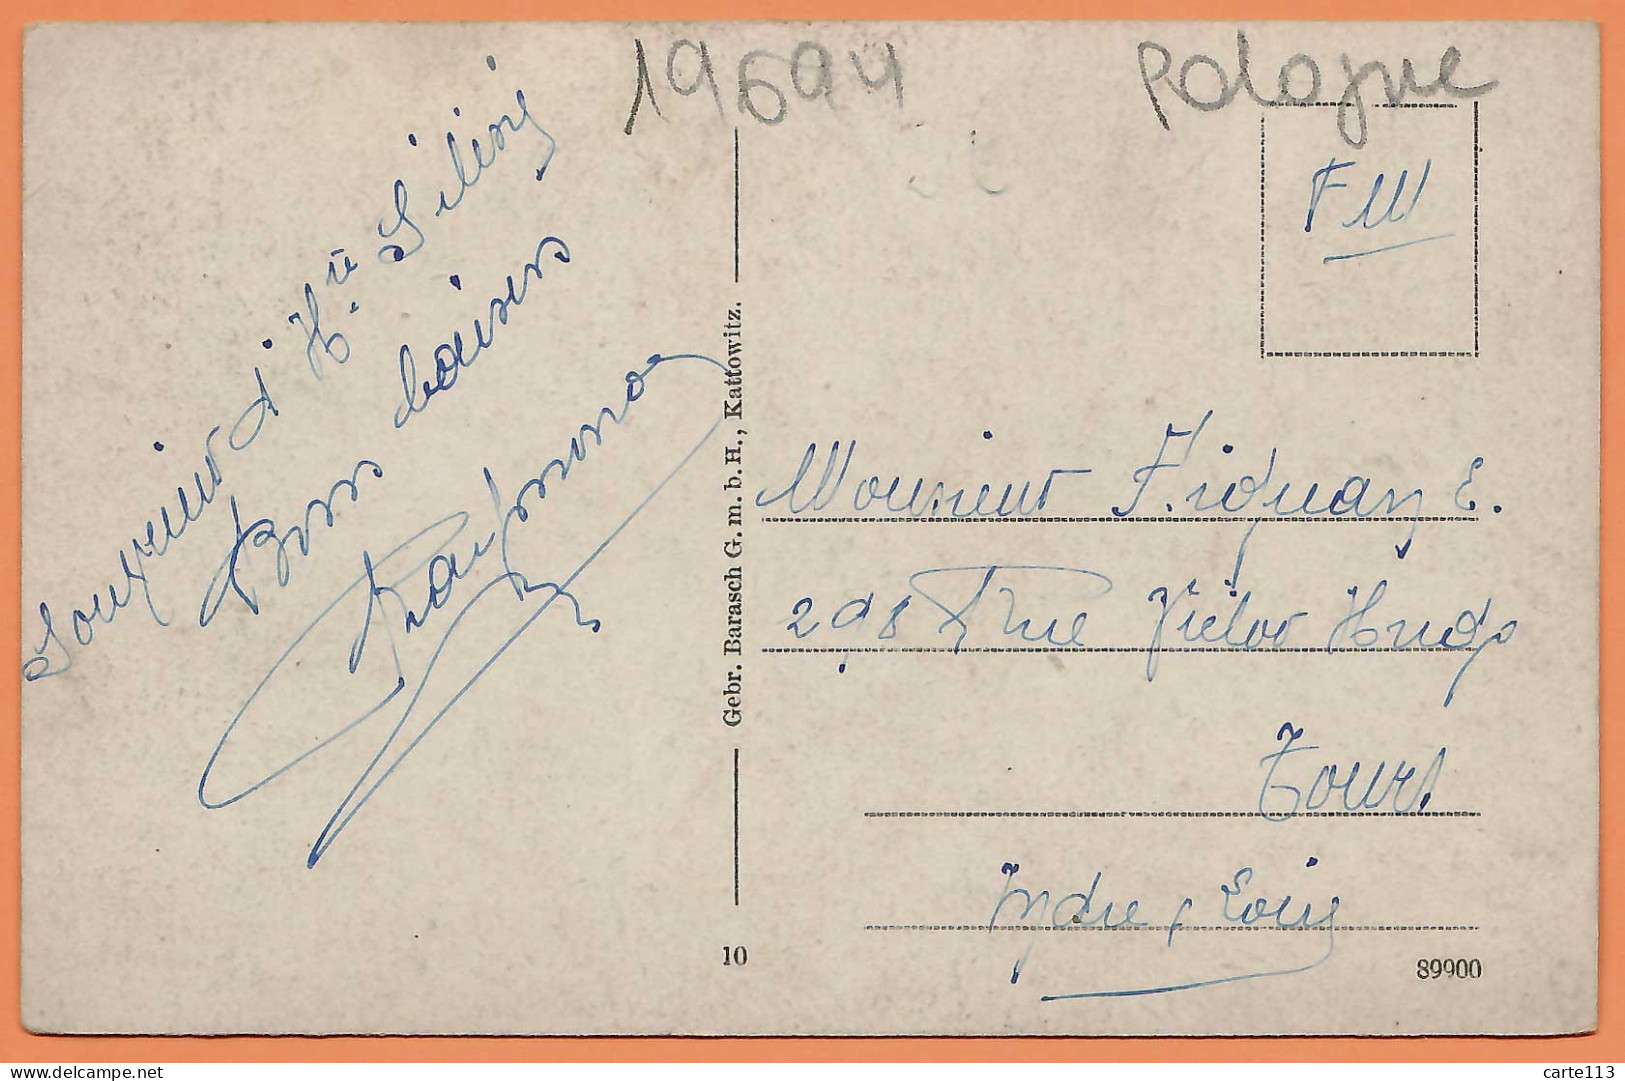 19694
Pologne
FM
Souvenir d'Hte Silésie
Bons baisers
Gebr. Barasch G. m. b. H., Kattowitz.
Monsieur Fiquay E.
298 Rue Victor Hugo
Tours
Indre & Loire
10
89900
carte113